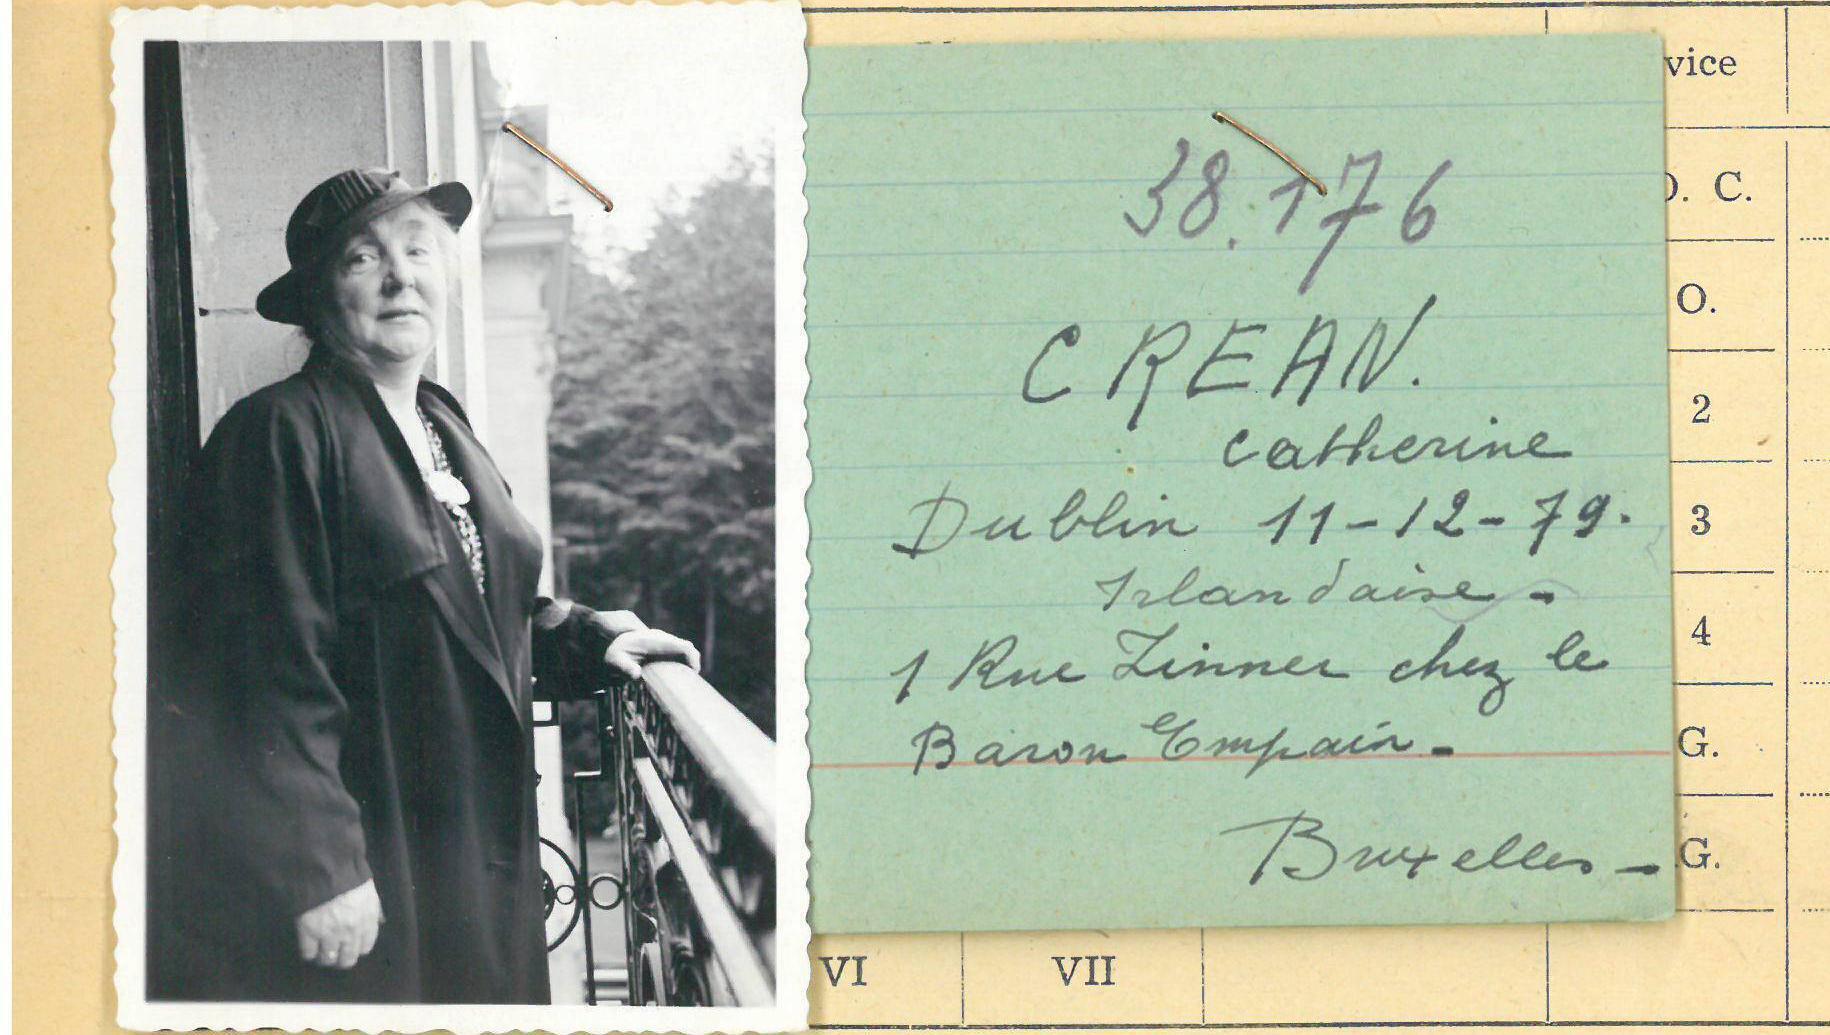 38.176
CREAN.
Catherine
Dublin 11-12-79.
Irlandaise -
1 Rue Zinner chez le
Baron Empain -
Bruxelles -
vice
C.
O.
2
3
4
G.
G.
VI VII